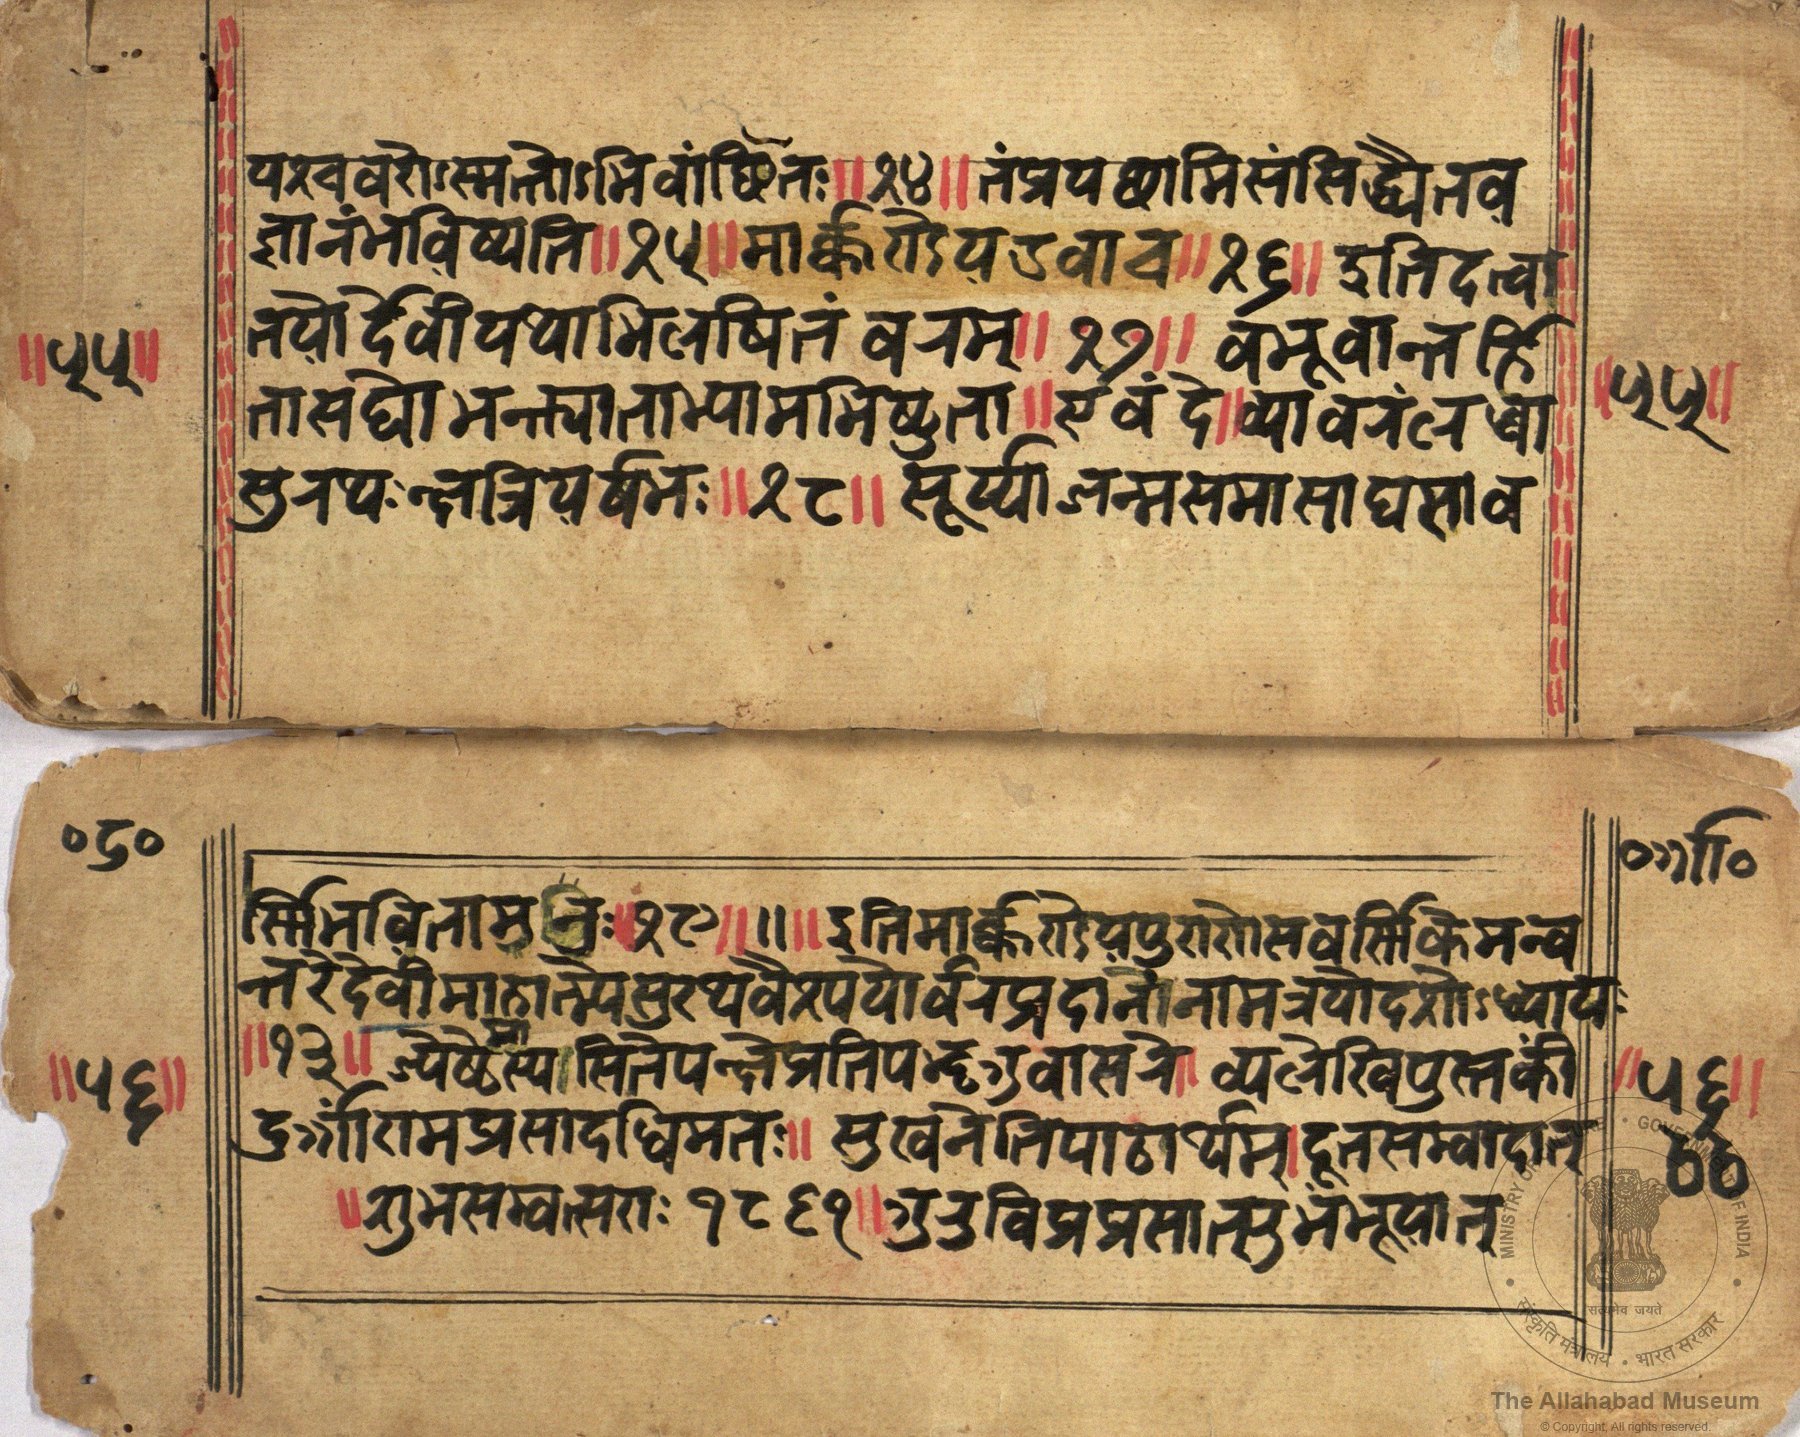 यश्च वरोऽस्मत्तोऽभिवांछितः॥१४॥ तंप्रयच्छामिसंसिद्ध्यैतव
ज्ञानंभविष्यति॥१५॥मार्कण्डेयउवाच॥१६॥ इतिदत्वा
तयोर्देवीयथाभिलषितं वरम्॥१७॥ वभूवान्तर्हि
तासद्योभक्त्याताभ्यामभिष्टुता॥एवं देव्यावरंलब्ध्वा
सुरथःक्षत्रियर्षभः॥१८॥ सूर्य्याज्जन्मसमासाद्यसाव
॥५५॥
॥५५॥
०दु०
०र्गा०
र्णिर्भवितामनुः॥१९॥॥॥इतिमार्कण्डेयपुराणेसावर्णिकेमन्व
न्तरेदेवीमाहात्म्येसुरथवैश्ययोर्वरप्रदानोनामत्रयोदशोऽध्यायः
॥१३॥ ज्येष्ठमास्यासितेपक्षेप्रतिपद्भृगुवासरे। व्यलेखिपुस्तकीं
दुर्गारामप्रसादधीमतः॥ सुखेनेतिपाठार्थम्।दूतसम्वादात्
॥शुभसम्वत्सराः १८६१॥गुरुविप्रप्रसात्सुभंभूयात्
॥५६॥
॥५६॥
MINISTRY OF CULTURE • GOVERNMENT OF INDIA
सत्यमेव जयते
संस्कृति मंत्रालय • भारत सरकार
The Allahabad Museum
© Copyright, All rights reserved.